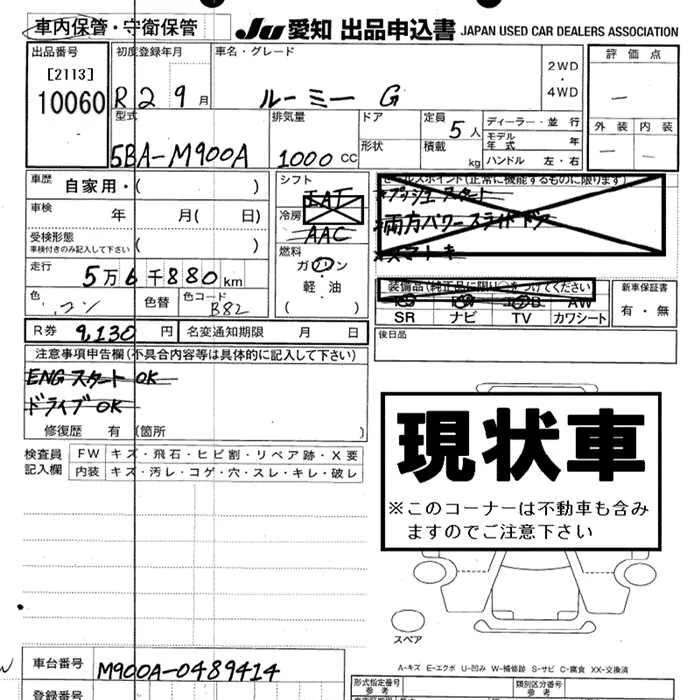 車内保管・守衛保管 JU 愛知 出品申込書 JAPAN USED CAR DEALERS ASSOCIATION
出品番号 初度登録年月 車名・グレード 2WD ・ 4WD 評価点
[2113]
10060 R2 9月 ルーミー G
型式 排気量 ドア 定員 5人 ディーラー・並行
モデル年式 年 外装 内装
5BA-M900A 1000cc 形状 積載 kg ハンドル 左・右
車歴 自家用・( ) シフト セールスポイント(正常に機能するものに限ります)
IAT プッシュスタート
車検 年 月(日) 冷房 両方パワースライドドア
受検形態 AAC スマートキー
車検付きのみ記入して下さい 燃料
走行 5万6千880km ガソリン 装備品(純正品に限り○をつけてください) 新車保証書
・ AW 有・無
色 色替 色コード B82 軽・油 SR ナビ TV カワシート
( )
R券 9,130円 名変通知期限 月 日 後日品
注意事項申告欄(不具合内容等は具体的に記入して下さい)
ENGスタート OK
ドライブOK
修復歴 有(箇所 )
現状車
検査員 FW キズ・飛石・ヒビ割・リペア跡・X要
記入欄 内装 キズ・汚レ・コゲ・穴・スレ・キレ・破レ
※このコーナーは不動車も含み
ますのでご注意下さい
スペア
A-キズ E-エクボ U-凹み W-補修跡 S-サビ C-腐食 XX-交換済
車台番号 M900A-0489414
形式指定番号 類別区分番号
参考 参考
登録番号